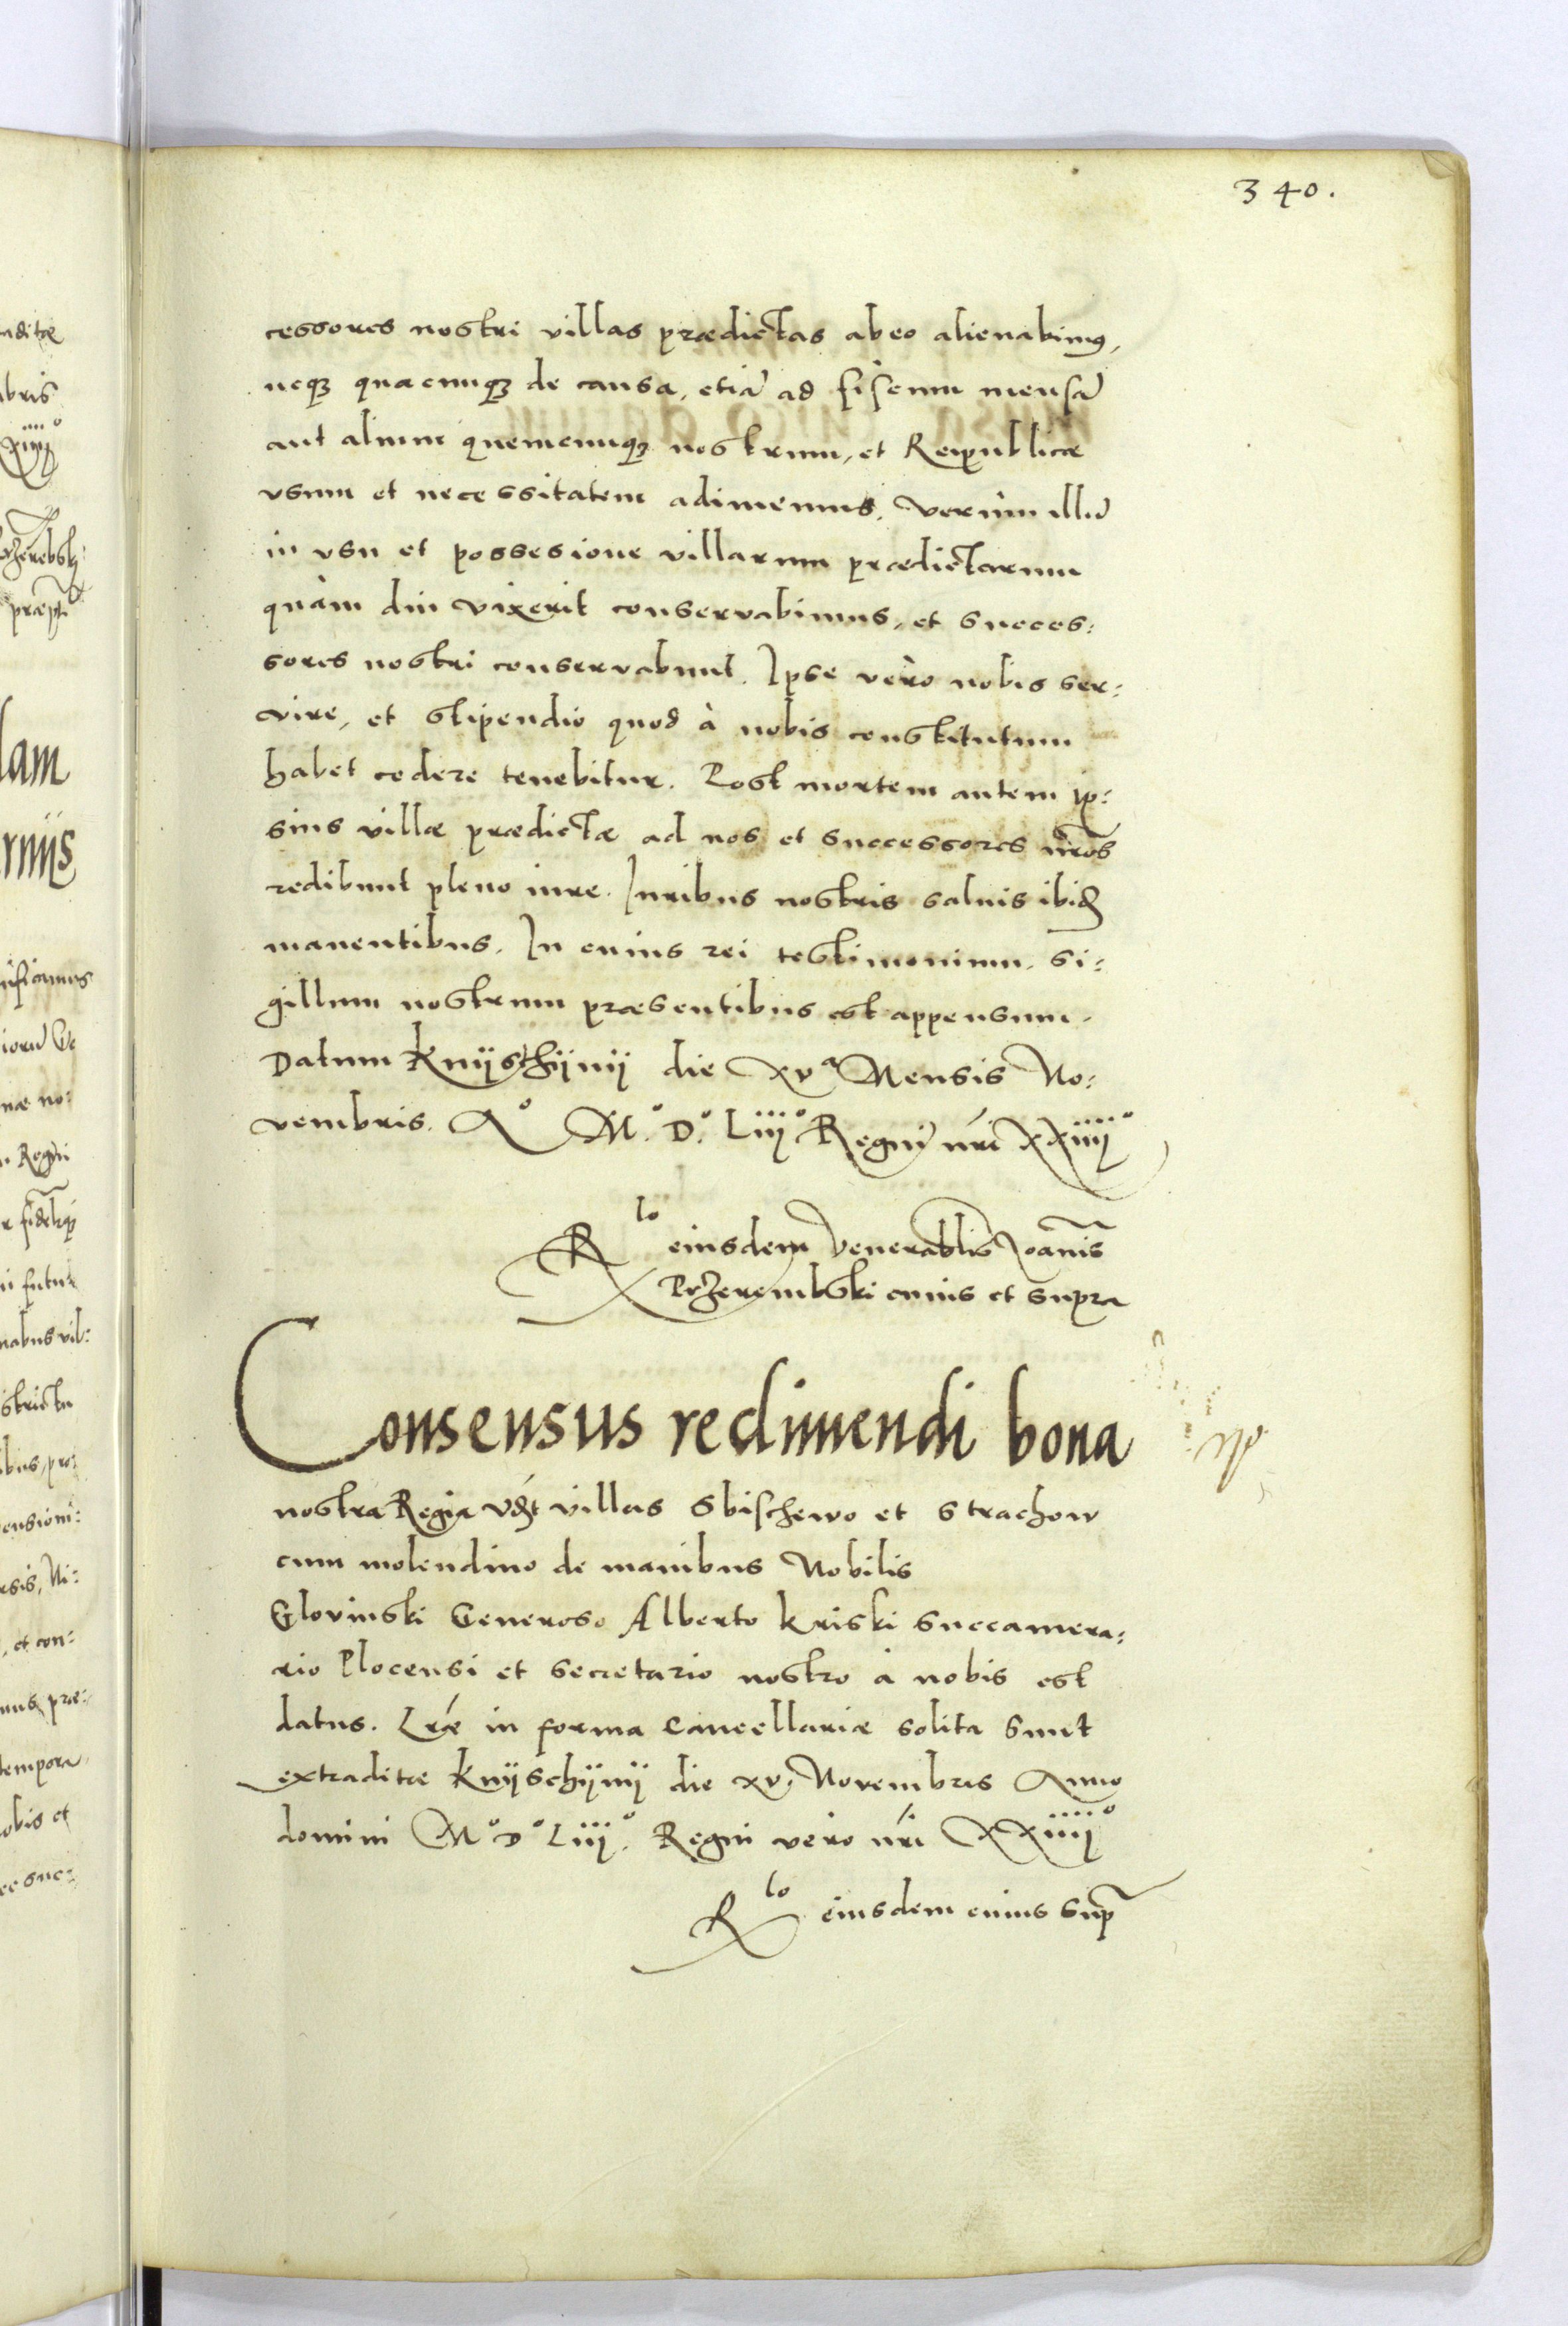 340.
cessores nostri villas prædictas ab eo alienabimus,
neque quacunque de causa, etiã ad fiscum mensã
aut alium quemcunque nostrum, et Reipublicæ
usum et necessitatem adimemus, verùm illũ
in usu et possesione villarum prædictarum
quàm diu vixerit conservabimus, et succes:
sores nostri conservabunt. Ipse vero nobis ser:
vire, et stipendio quod à nobis constitutum
habet cedere tenebitur. Post mortem autem ip:
sius villæ prædictæ ad nos et successores nr̃os
redibunt pleno iure. Iuribus nostris salvis ibid
manentibus. In cuius rei testimonium, si:
gillum nostrum præsentibus est appensum.
Datum Knijschijnij die xvª Mensis No:
vembris. Aº Mº. Dº. Liijº Regni nri XXiiijº
Rlo eiusdem Venerablis Joannis
Przerembski cuius et supra
Consensus redimendi bona
nostra Regia vdt villas Sbischewo et Strachow
cum molendino de manibus Nobilis
Glovinski Generoso Alberto Kriski Succamera:
rio Plocensi et secretario nostro à nobis est
datus. Lræ in forma Cancellariæ solita sunt
extraditæ Knijschijnij die xv. Novembris Anno
domini Mº Dº Liijº. Regni vero nri XXiiijº
Rlo eiusdem cuius supr